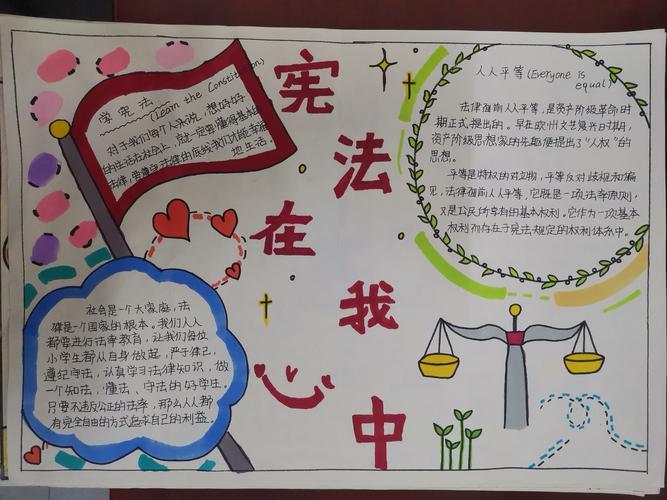 宪法在我心中
学宪法
(Learn the Constitution)
对于我们每个人来说，想好好
的生活在社会上，就一定要懂得基本的
法律，要遵守法律的底线我们才能幸福
地生活。
社会是一个大家庭，法
律是一个国家的根本。我们人人
都要进行法率教育，让我们每位
小学生都从自身做起，严于律己，
遵纪守法，认真学习法律知识，做
一个知法，懂法、守法的好学生。
只要不违反公正的法率，那么人人都
有完全自由的方式追求自己的利益。
人人平等(Everyone is
equal)
法律面前人人平等，是资产阶级革命时
期正式提出的。早在欧州文艺复兴时期，
资产阶级思想家的先驱便提出了"人权"的
思想。
平等是特权的对立物，平等反对歧视和偏
见，法律面前人人平等，它既是一项法率原则，
又是公民所享有的基本权利。它作为一项基本
权利而存在于宪法规定的权利体系中。